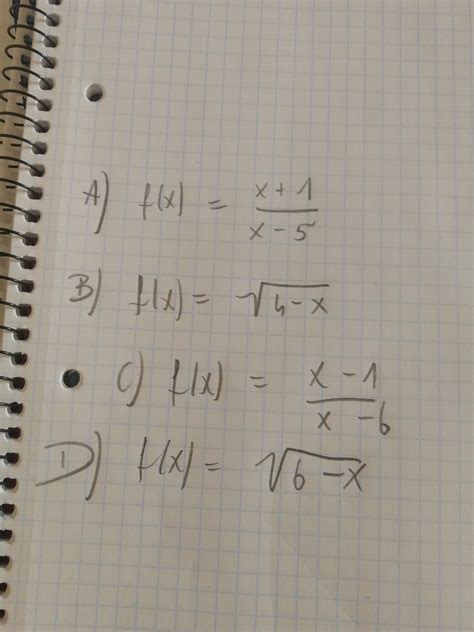 A) f(x) = \frac{x+1}{x-5}
B) f(x) = \sqrt{4-x}
C) f(x) = \frac{x-1}{x-6}
D) f(x) = \sqrt{6-x}